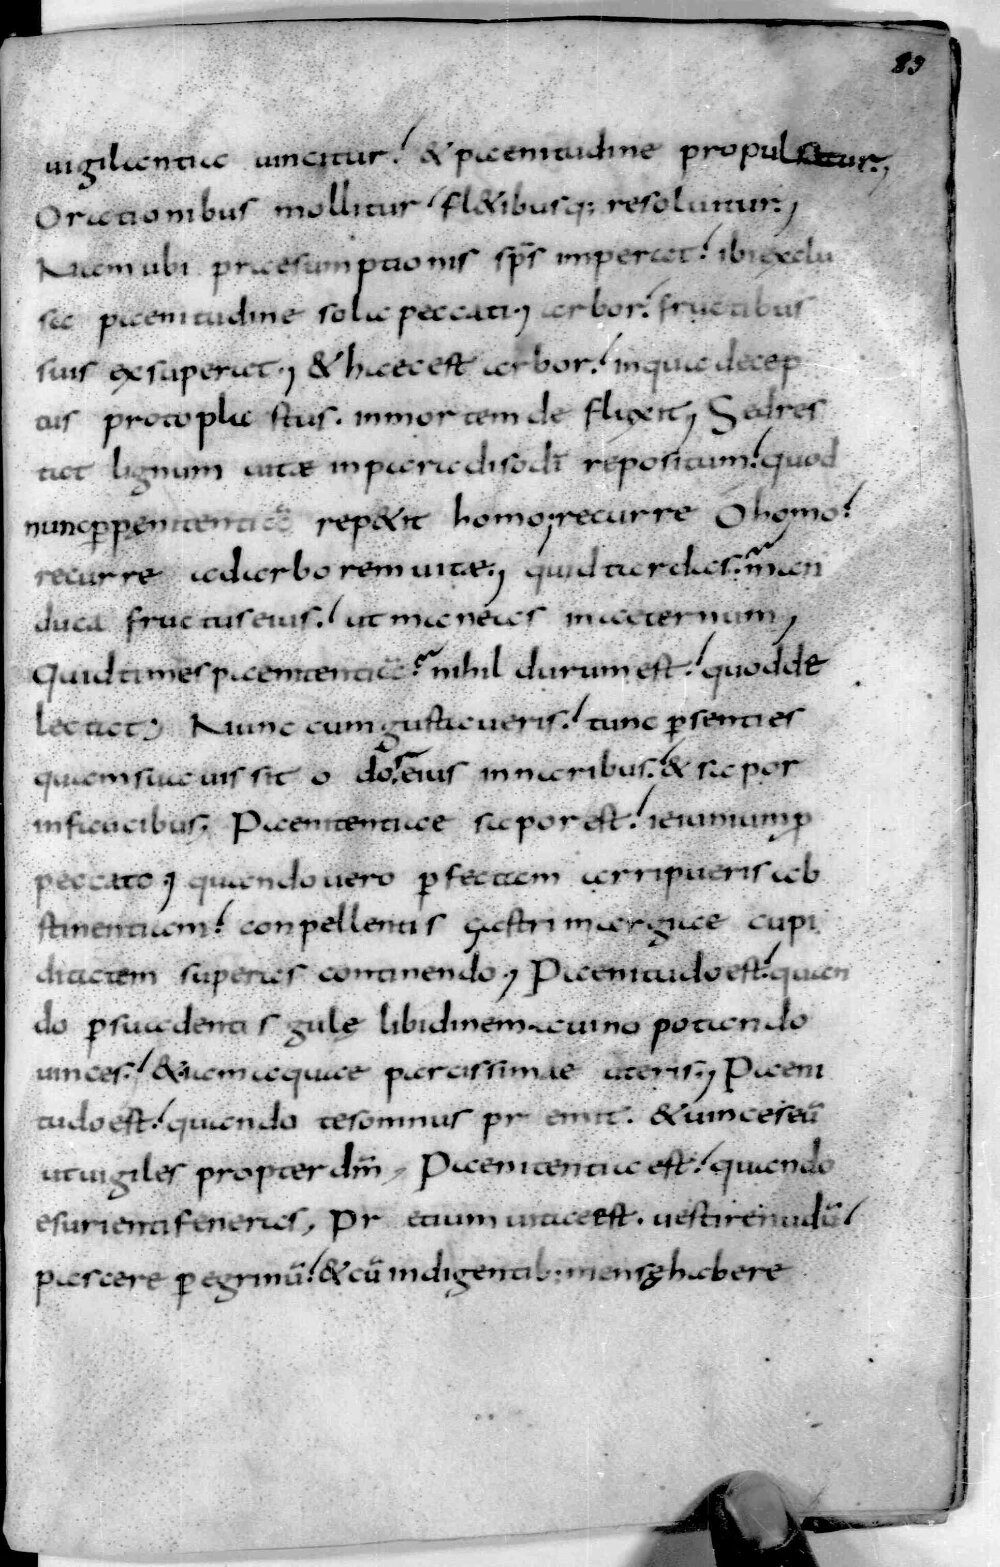 89
uigilantia uincitur. & paenitudine propulsatur;
Orationibus mollitur fl&ibusq; resoluitur;
Nam ubi praesumptionis sps̄ imperat. ibi exclu
sa paenitudine sola peccati; arbor. fructibus
suis exsuperat; & haec est arbor. in qua decep
tus protoplastus. in mortem defligxit; Sed res
tat lignum uitae in paradiso dī repositum. quod
nunc ꝑ penitentiā rep&it homo; recurre O homo.
recurre ad arborem uitae; quid tardas. man
duca fructus eius. ut maneas in aeternum;
Quid times paenitentiā. nihil durum est. quod de
lectat; Nunc cum gustaueris. tunc ꝑsenties
quam suauis sit odo ̄r eius in naribus. & sapor
in faucibus; Paenitentiae sapor est. ieiunium ꝓ
peccato; quando uero ꝑfectam arripueris ab
stinentiam. conpellentis gastrimargiae cupi
ditatem superas continendo; Paenitudo est. quan
do ꝑsuadentis gulę libidinem a uino potando
uinces. & iam aquae parcissimae uteris; Paeni
tudo est. quando te somnus pr emit. & uinces eū
ut uigiles propter dm̄; Paenitentia est. quando
esurienti feneras, Pr etium uitae est. uestire nudū
pascere ꝑegrinū. & cū indigentib; mensę habere